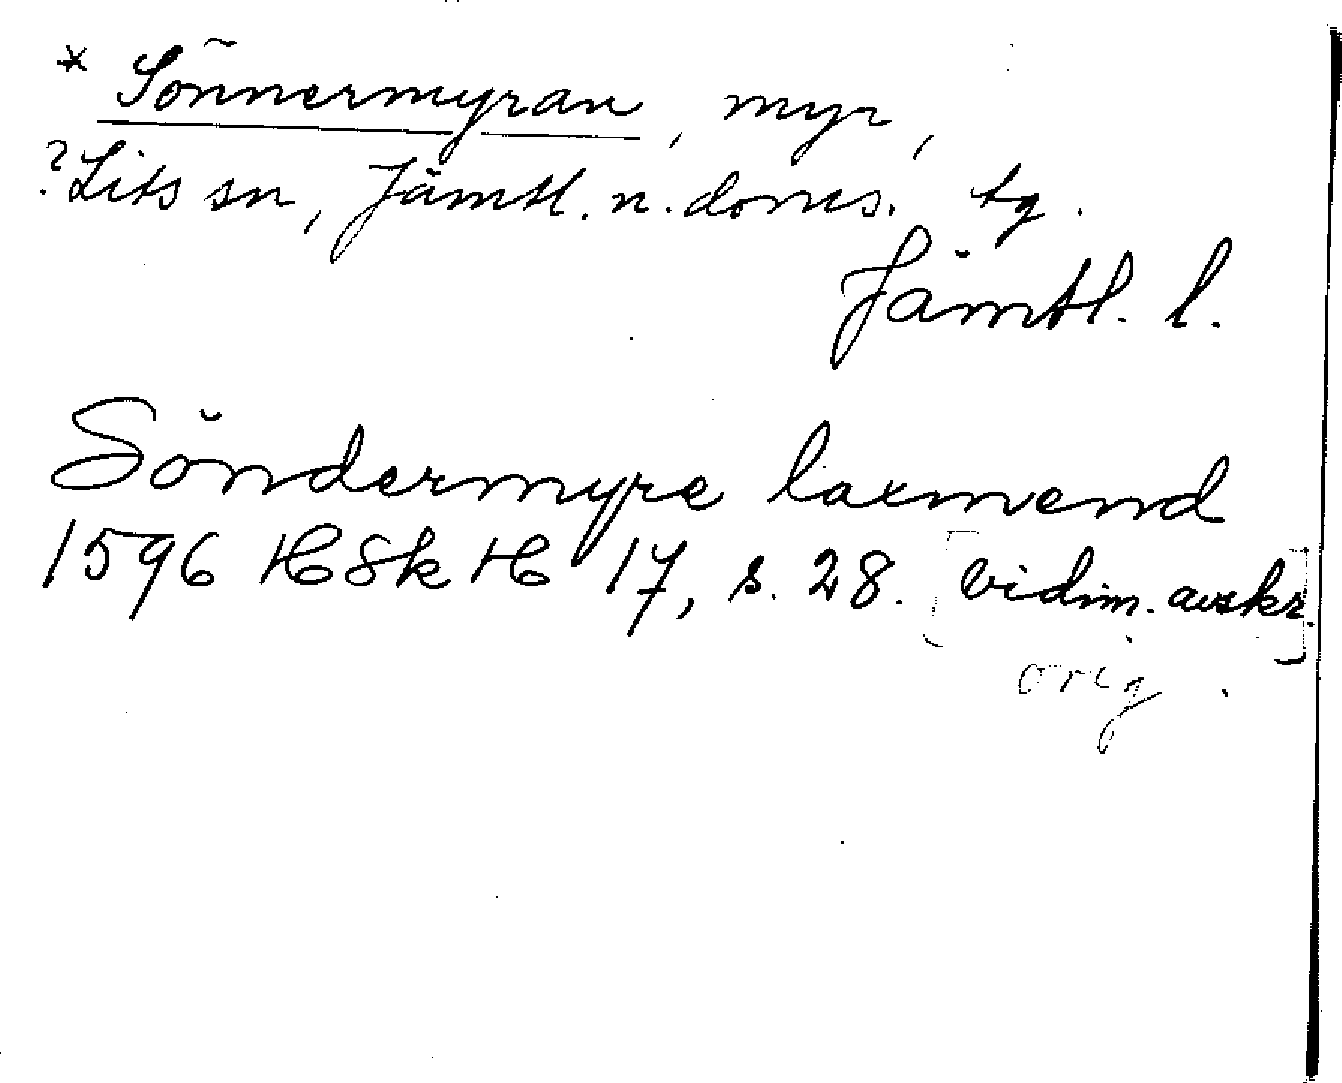 * Sönnermyran, myr,
? Lits sn, Jämtl. n. doms. tg.
Jämtl. l.
Söndermyre laxmend
1596 HSkH 17, s. 28. [vidim. avskr.]
orig.